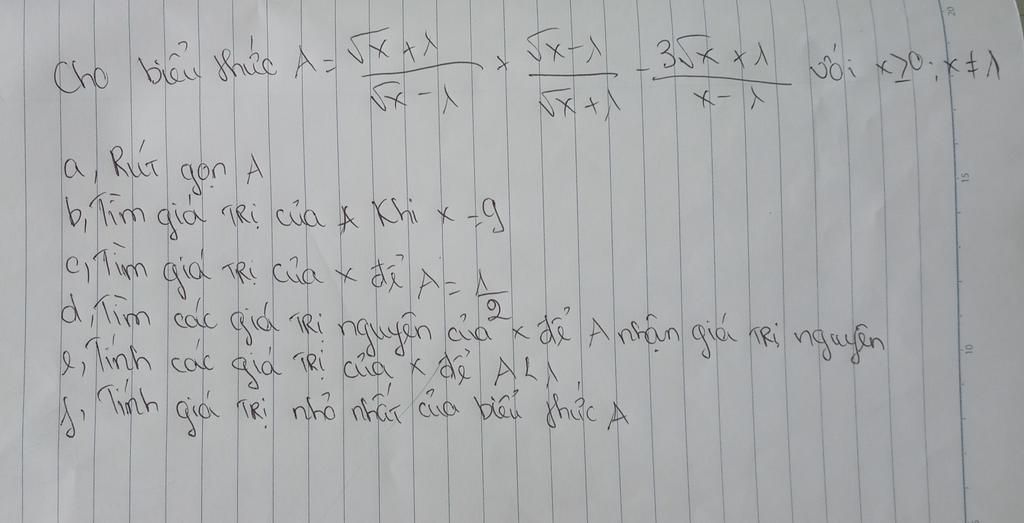 Cho biểu thức A = (√x + 1)/(√x - 1) + (√x - 1)/(√x + 1) - (3√x + 1)/(x - 1) với x ≥ 0 ; x ≠ 1
a, Rút gọn A
b, Tìm giá trị của A khi x = 9
c, Tìm giá trị của x để A = 1/2
d, Tìm các giá trị nguyên của x để A nhận giá trị nguyên
e, Tính các giá trị của x để A < 1
f, Tính giá trị nhỏ nhất của biểu thức A
20
15
10